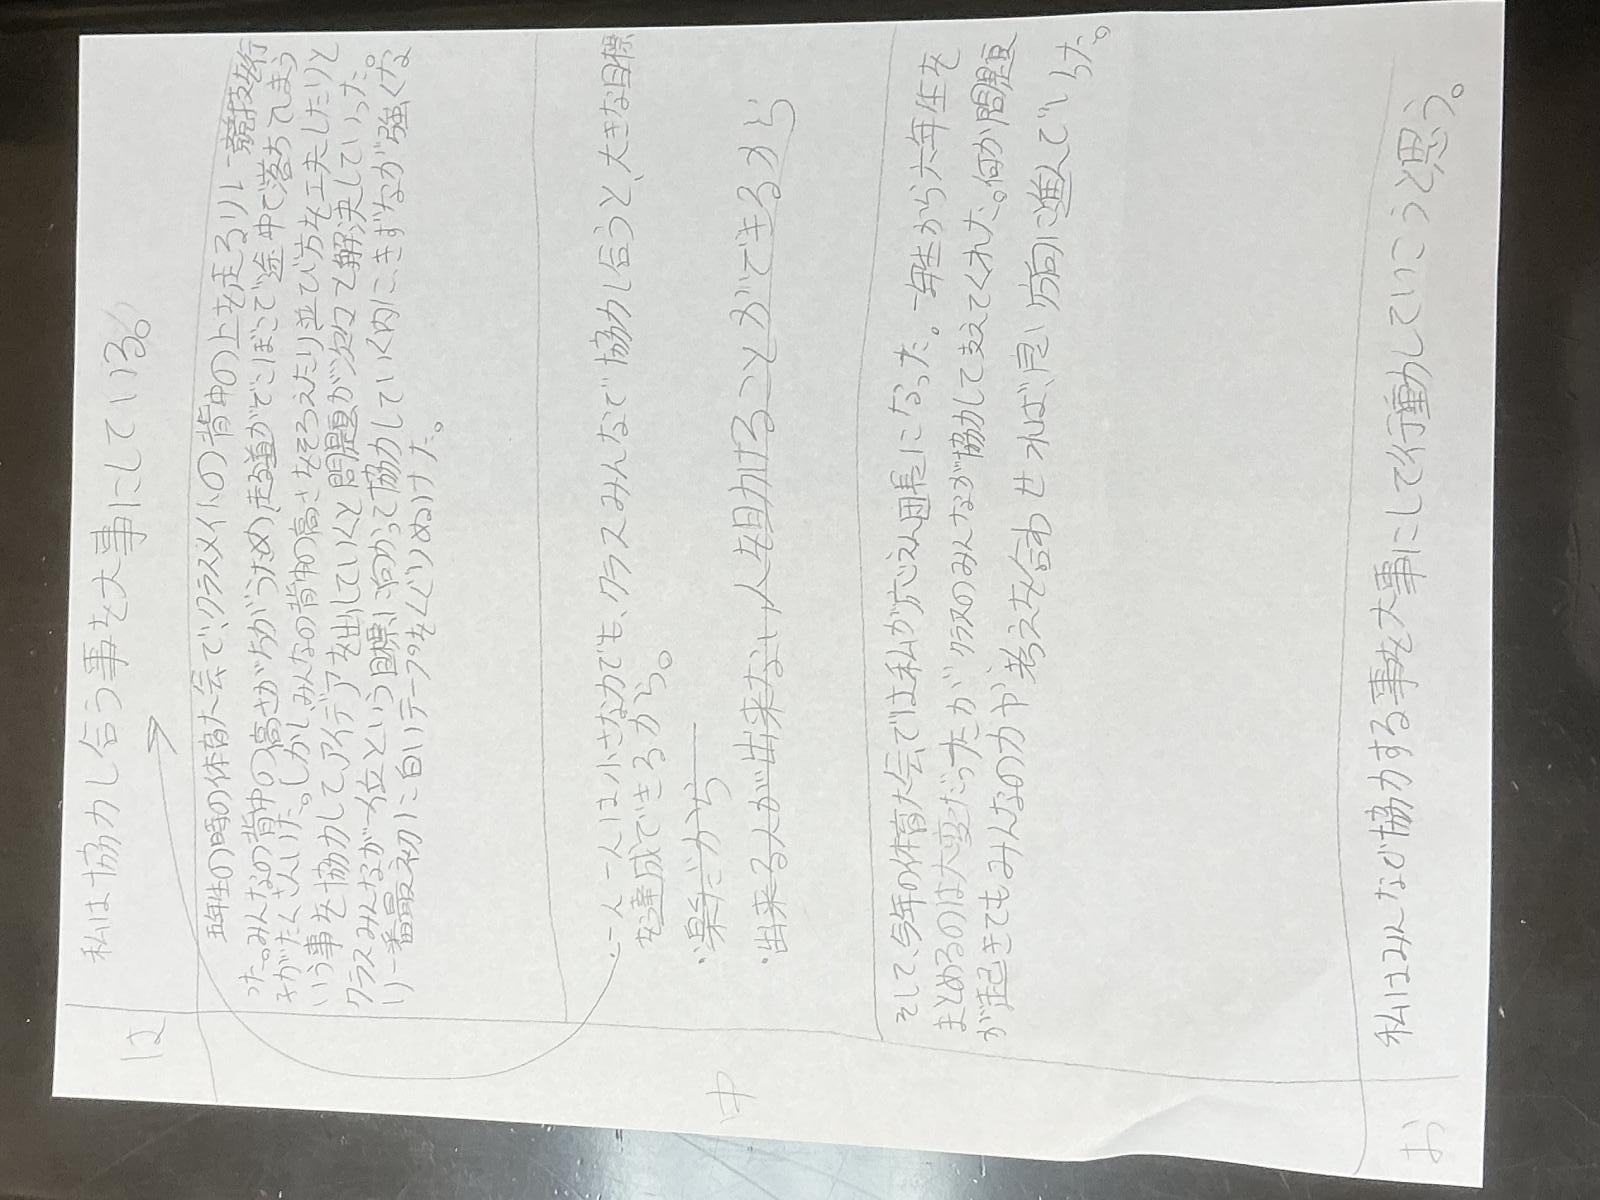 は
私は協力し合う事を大事にしている。
五年生の時の体育大会で、クラスメイトの背中の上を走るリレー競技を行
った。みんなの背中の高さがちがうため走る道がでこぼこで途中で落ちてしまう
子がたくさんいた。しかし、みんなの背中の高さをそろえたり並び方を工夫したりと
いう事を協力してアイデアを出していくと問題が次々と解決していった。
クラスみんなが一位という目標に向かって協力していく内にきずなが強くな
り一番最初に白いテープをくぐりぬけた。
中
・一人一人は小さな力でも、クラスみんなで協力し合うと、大きな目標
を達成できるから。
・楽だから
・出来る人が出来ない人を助けることができるから
そして、今年の体育大会では私が応えん団長になった。一年生から六年生を
まとめるのは大変だったがクラスのみんなが協力して支えてくれた。何か問題
が起きてもみんなの力や考えを合わせれば、良い方向に進んでいった。
お
私はみんなで協力する事を大事にして行動していこうと思う。